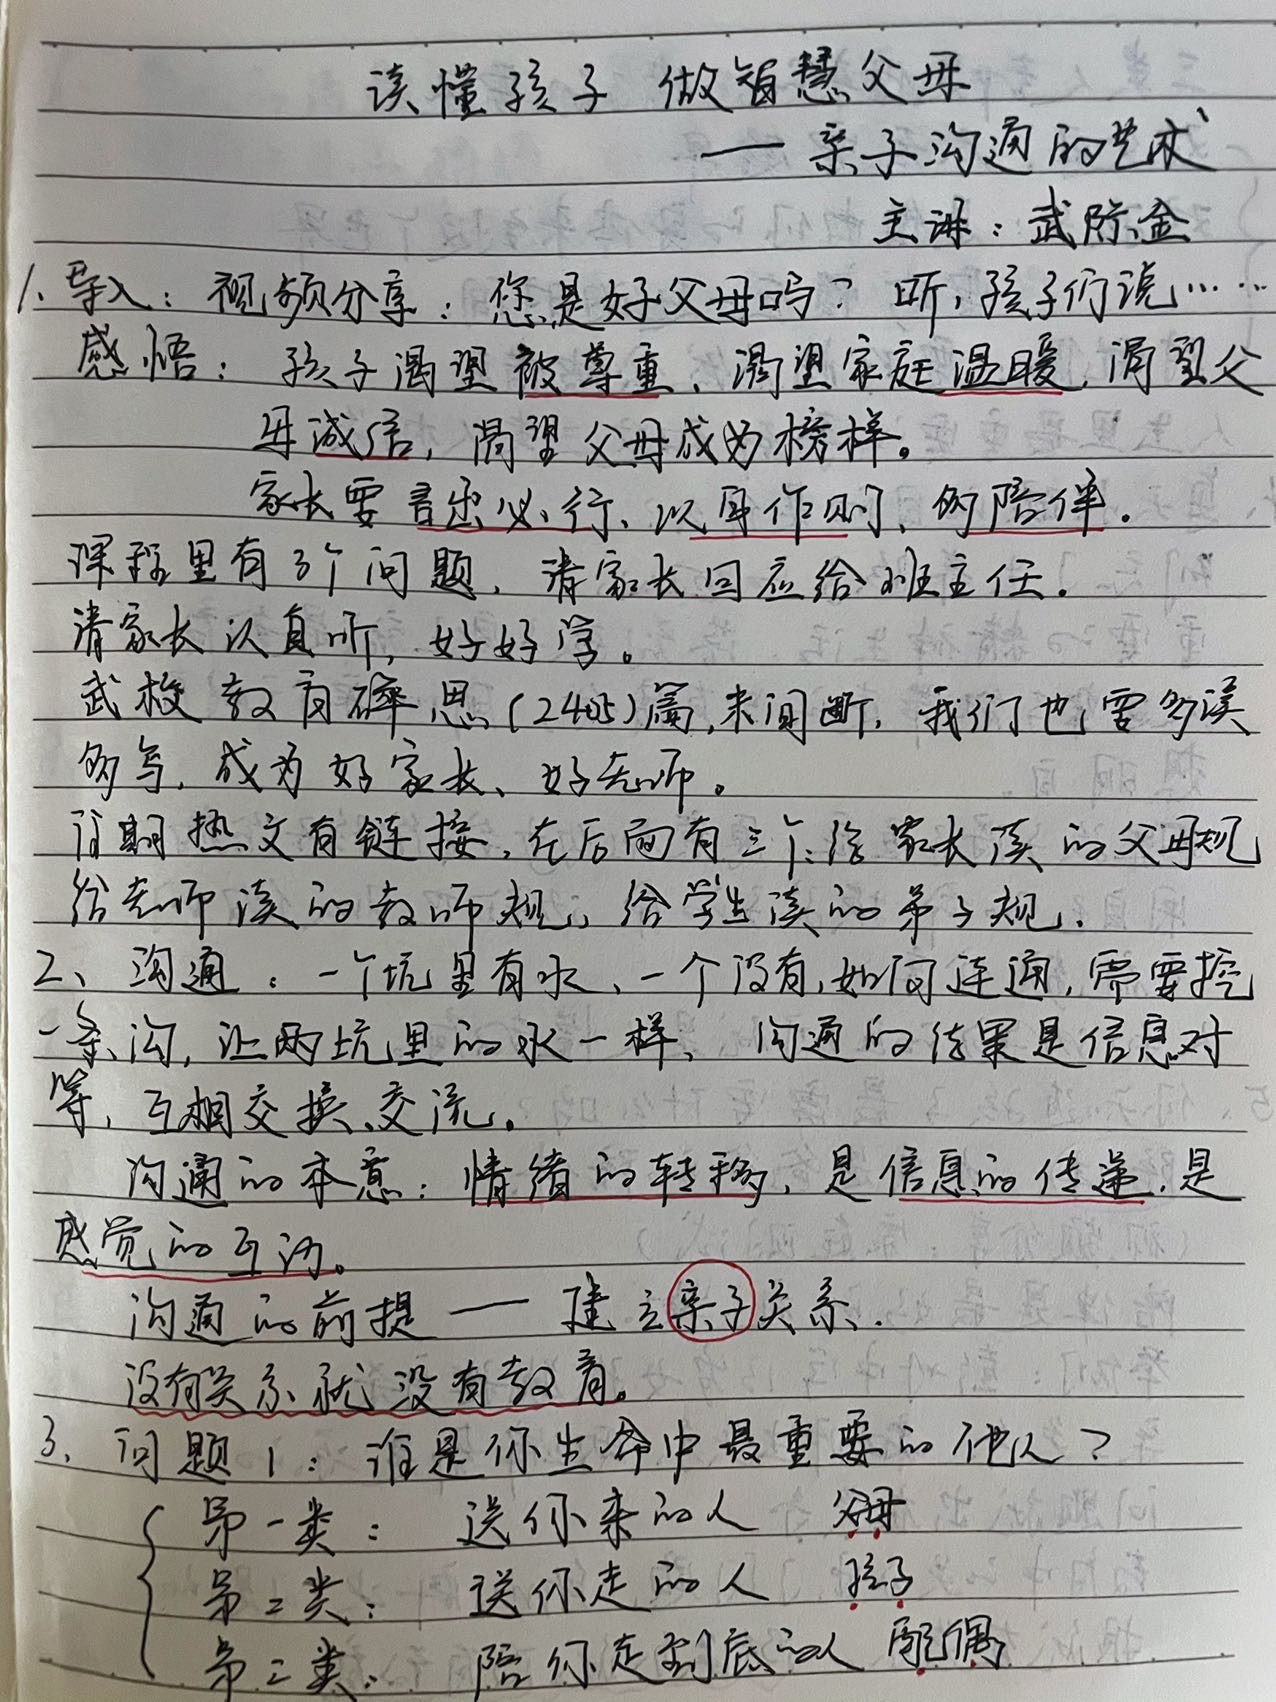 读懂孩子 做智慧父母
——亲子沟通的艺术
主讲：武际金
1、导入：视频分享：您是好父母吗？听，孩子们说……
感悟：孩子渴望被尊重、渴望家庭温暖，渴望父
母诚信，渴望父母成为榜样。
家长要言出必行、以身作则、多陪伴。
课程里有3个问题，请家长回应给班主任。
请家长认真听，好好学。
武校教育碎思(2405)篇，未间断，我们也需多读
多写，成为好家长、好老师。
每期热文有链接，在后面有三个：给家长读的父母规
给老师读的教师规，给学生读的弟子规.
2、沟通：一个坑里有水、一个没有，如何连通，需要挖
一条沟，让两坑里的水一样、沟通的结果是信息对
等，互相交换、交流。
沟通的本意：情绪的转移，是信息的传递，是
感觉的互动。
沟通的前提——建立亲子关系.
没有关系就没有教育。
3、问题1：谁是你生命中最重要的他人？
第一类：送你来的人 父母
第二类：送你走的人 孩子
第三类：陪你走到底的人 配偶